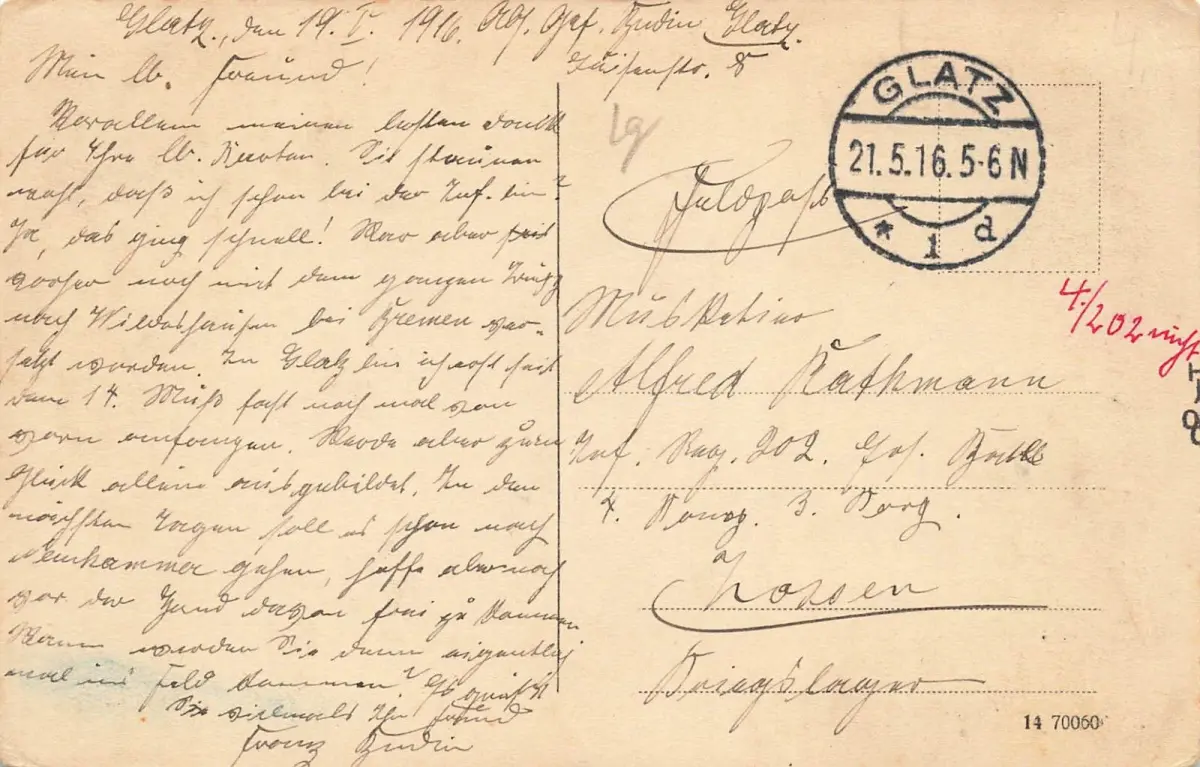 Glatz, den 19. V. 1916. Abs. Gef. Budin Glatz.
Mein lb. Freund!
Vorallem meinen besten Dank
für Ihre lb. Karten. Sie staunen
wohl, daß ich schon bei der Inf. bin?
Ja, das ging schnell! War aber
vorher noch mit dem ganzen
nach Wildeshausen bei Bremen ver-
setzt worden. In Glatz bin ich erst seit
dem 14. Muß fast noch mal von
vorn anfangen. Werde aber zum
Glück allein ausgebildet. In den
nächsten Tagen soll es schon nach
Neuhammer gehen, hoffe aber noch
vor der Hand davon frei zu kommen
Wann werden Sie denn eigentlich
mal ins Feld kommen? Es grüßt
Sie vielmals Ihr Freund
Franz Budin
Feldpost
GLATZ
21.5.16.5-6N
* 1 d
Musketier
Alfred Rathmann
Inf. Reg. 202. Ers. Batl
4. Komp. 3. Korp.
Zossen
Kriegslager
4./202 nicht
14 70060